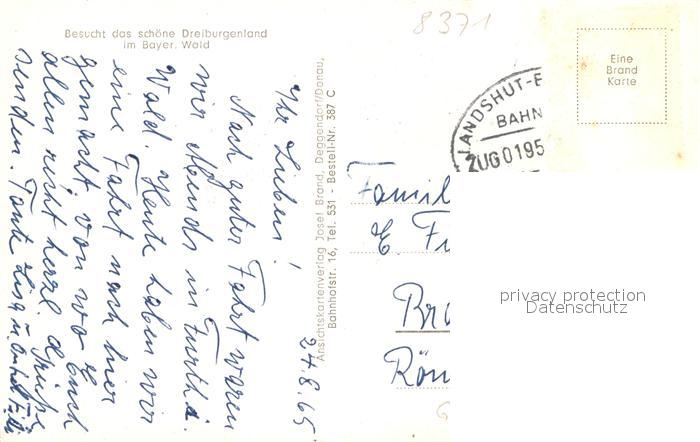 Besucht das schöne Dreiburgenland
im Bayer. Wald
8371
24.8.65
Ihr Lieben!
Nach guter Fahrt waren
wir Abends in Furth i.
Wald. Heute haben wir
eine Fahrt nach hier
gemacht, von wo Euch
allen recht herzl. Grüße
senden. Tante Lisa u. Onkel
Ansichtskartenverlag Josef Brand, Deggendorf/Donau,
Bahnhofstr. 16, Tel. 531 - Bestell-Nr. 387 C
LANDSHUT-
BAHN
ZUG 0195
Eine
Brand
Karte
Famil
E. F
Br
Röm
privacy protection
Datenschutz